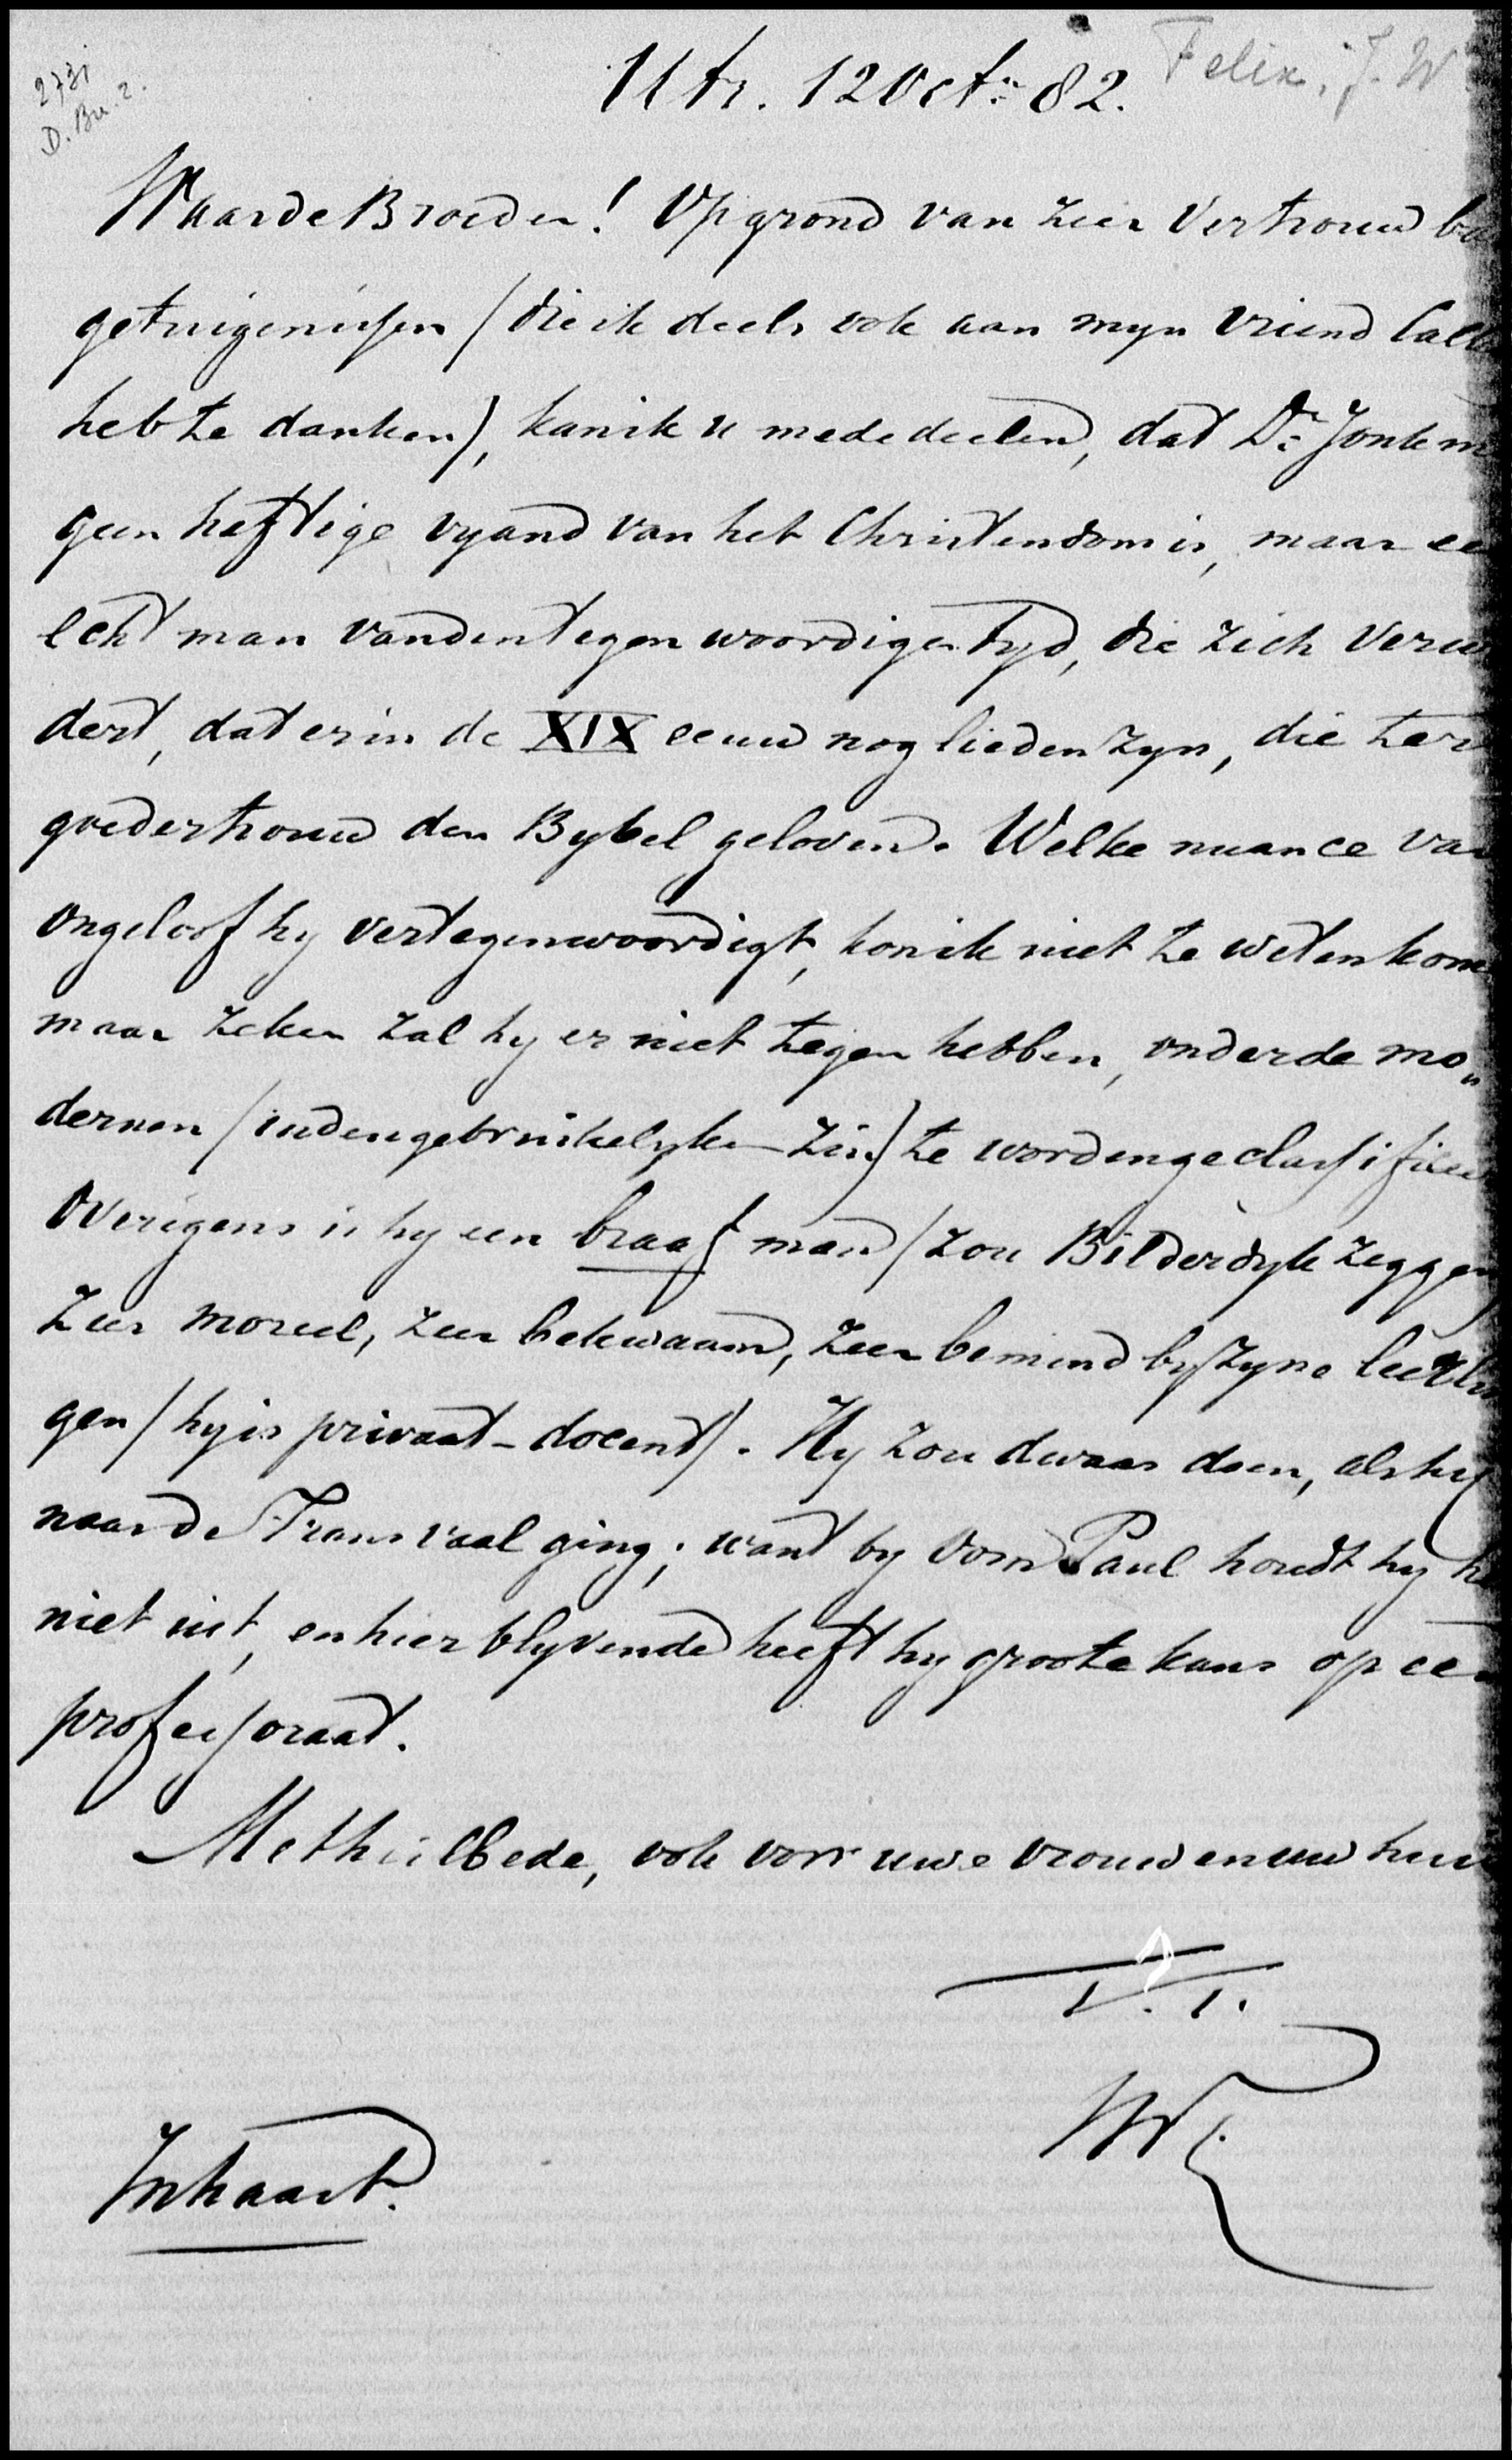 2731
D. Bu. 2.
Felix, J. W
Utr. 12 Oct. 82.
Waarde Broeder! Op grond van zeer vertrouwba
getuigenissen (die ik deels ook aan mijn vriend Call
heb te danken), kan ik u mededeelen, dat Dr. Jonkm
geen heftige vyand van het Christendom is, maar ee
echt man van den tegenwoordigen tyd, die zich verw
dert, dat er in de XIX eeuw nog lieden zyn, die ter
goedertrouw den Bybel geloven. Welke nuance van
ongeloof hy vertegenwoordigt, kon ik niet te weten kom
maar zeker zal hy er niet tegen hebben, onder de mo„
dernen (in den gebruikelyken zin) te worden geclassificee
Overigens is hy een braaf man (zou Bilderdyk zeggen)
zeer moreel, zeer bekwaam, zeer bemind by zyne leerlin
gen (hy is privaat-docent). Hy zou dwaas doen, als hy
naar de Transvaal ging; want by Oom Paul houdt hy he
niet uit, en hier blyvende heeft hy groote kans op een
professoraat.
Met heilbede, ook voor uwe vrouw en uw huis
t. t.
In haast.